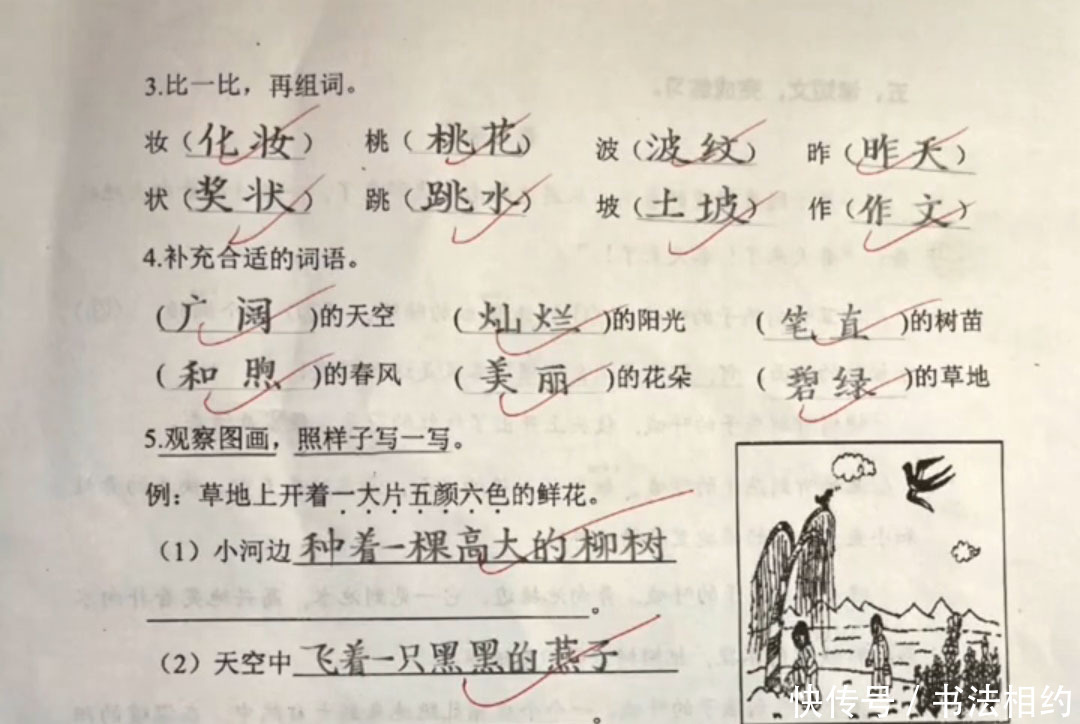 3.比一比，再组词。
妆（化妆） 桃（桃花） 波（波纹） 昨（昨天）
状（奖状） 跳（跳水） 坡（土坡） 作（作文）
4.补充合适的词语。
（广阔）的天空 （灿烂）的阳光 （笔直）的树苗
（和煦）的春风 （美丽）的花朵 （碧绿）的草地
5.观察图画，照样子写一写。
例：草地上开着一大片五颜六色的鲜花。
（1）小河边种着一棵高大的柳树
。
（2）天空中飞着一只黑黑的燕子
。
快传号 / 书法相约